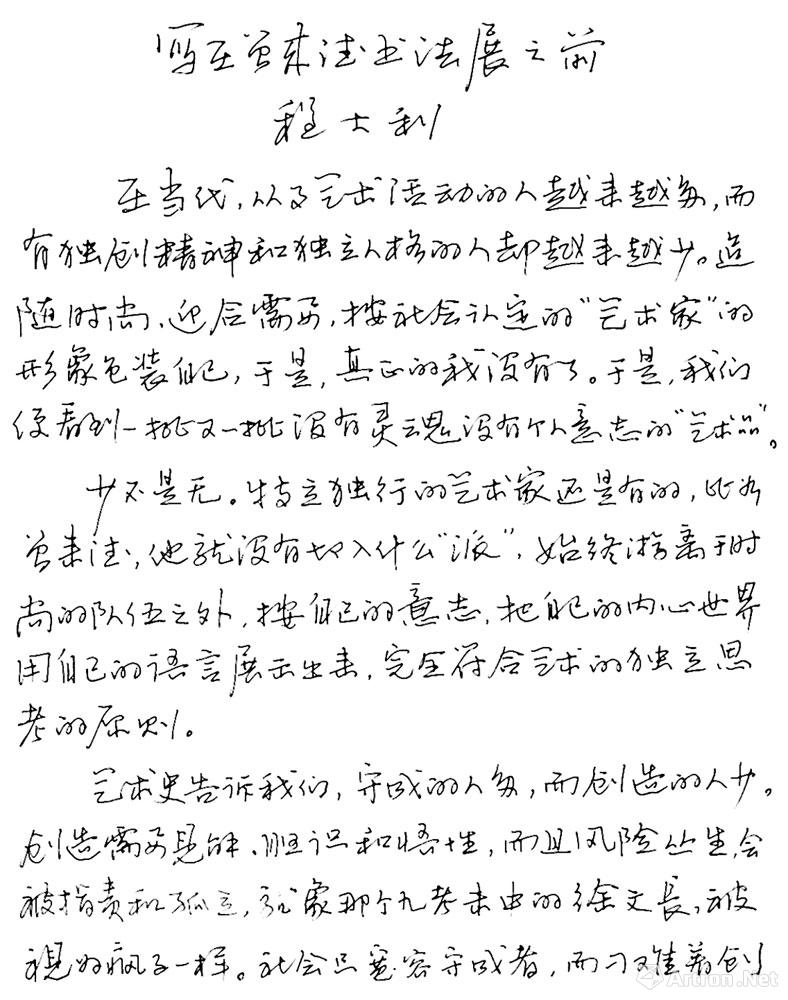 写在曾来德书法展之前
程大利
在当代，从事艺术活动的人越来越多，而
有独创精神和独立人格的人却越来越少。追
随时尚、迎合需要，按社会认定的"艺术家"的
形象包装自己，于是，真正的我没有了。于是，我们
便看到一批又一批没有灵魂没有个人意志的"艺术品"。
少不是无。特立独行的艺术家还是有的，比如
曾来德，他就没有切入什么"派"，始终游离于时
尚的队伍之外，按自己的意志，把自己的内心世界
用自己的语言展示出来，完全符合艺术的独立思
考的原则。
艺术史告诉我们，守成的人多，而创造的人少。
创造需要见解、胆识和悟性，而且风险丛生，会
被指责和孤立，就象那个九考未中的徐文長，被
視如疯子一样。社会只宽容守成者，而刁难着创
Artron.Net